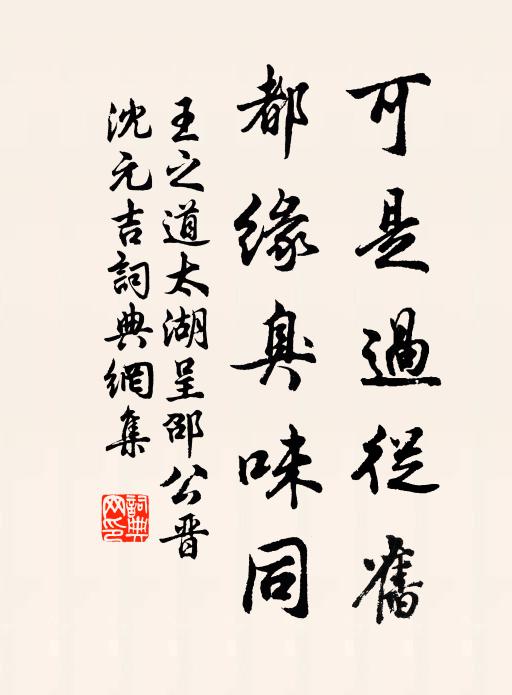 可是過從舊
都緣臭味同
王之道太湖呈邵公晉
沈元吉詞典網集
詞典網印